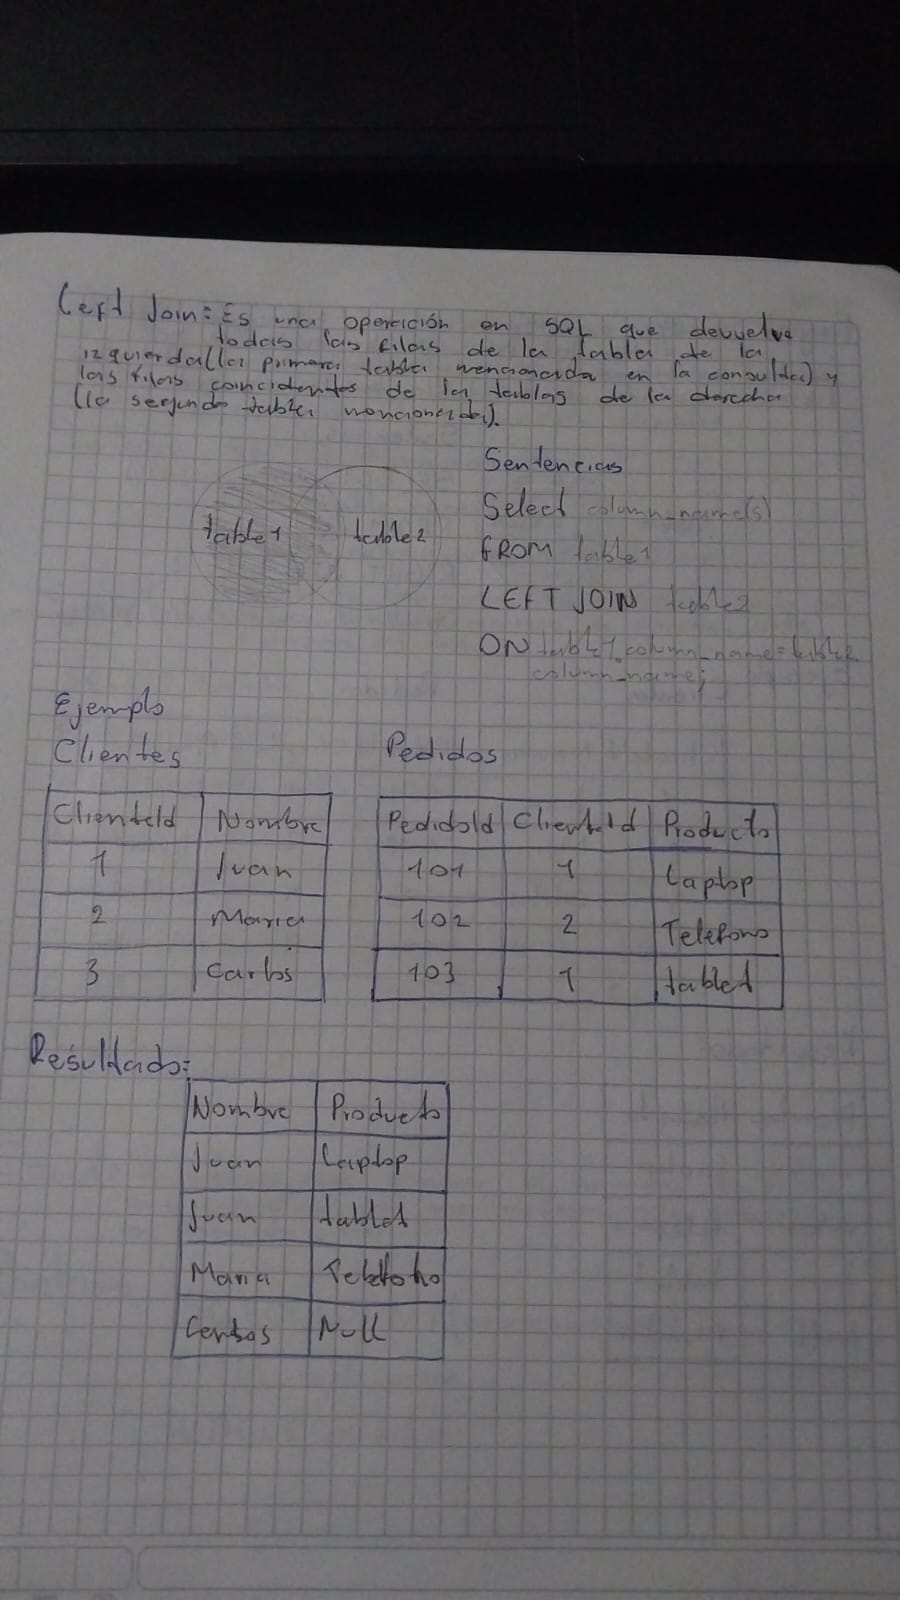 Left Join: Es una operación en SQL que devuelve
todas las filas de la tabla de la
izquierda(la primera tabla mencionada en la consulta) y
las filas coincidentes de la tablas de la derecha
(la segunda tabla mencionada).
Sentencias
table1 table2
Select column_name(s)
FROM table1
LEFT JOIN table2
ON table1.column_name=table2
column_name;
Ejemplo
Clientes Pedidos
ClienteId Nombre PedidoId ClienteId Producto
1 Juan 101 1 Laptop
2 Maria 102 2 Telefono
3 Carlos 103 1 tablet
Resultado:
Nombre Producto
Juan Laptop
Juan tablet
Maria Telefono
Null